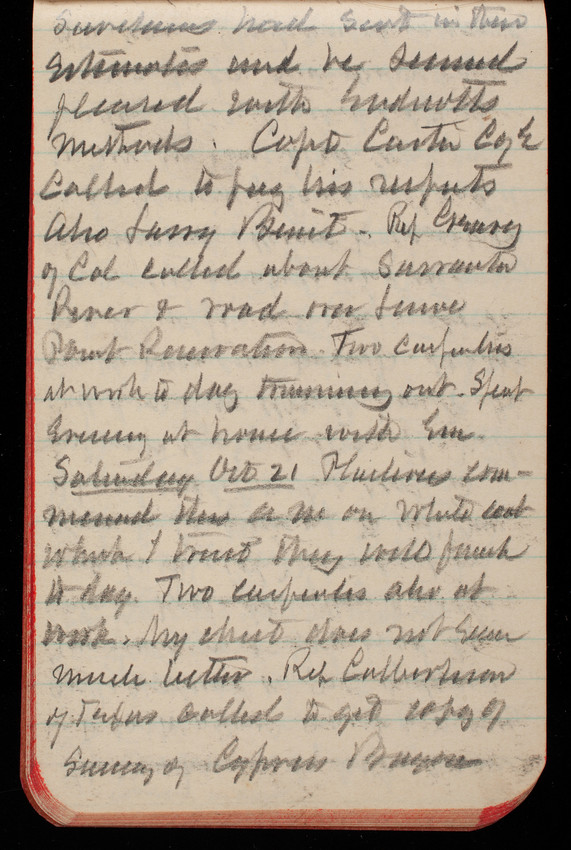 had sent in their
Estimates and he seemed
pleased with Endicotts
methods. Capt Carter Co E
Called to pay his respects
Also Larry Benét. Rep Geary
of Cal called about
River & road over Lime
Point Reservation. Two carpenters
at work to day trimming out. Spent
Evening at home with Em.
Saturday Oct 21 Plasterers com-
menced this a m on white coat
which I trust they will finish
to day. Two carpenters also at
work. My chest does not seem
much better. Rep Culberson
of Texas called to get copy of
Survey of Cypress Bayou